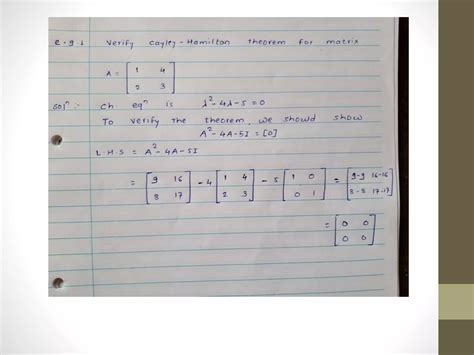 e.g.1 Verify Cayley-Hamilton theorem for matrix
A = [ 1 4
2 3 ]
Solⁿ :- Ch eqⁿ is λ²-4λ-5=0
To verify the theorem, we should show
A²-4A-5I = [0]
L.H.S = A²-4A-5I
= [ 9 16
8 17 ] - 4 [ 1 4
2 3 ] - 5 [ 1 0
0 1 ] = [ 9-9 16-16
8-8 17-17 ]
= [ 0 0
0 0 ]